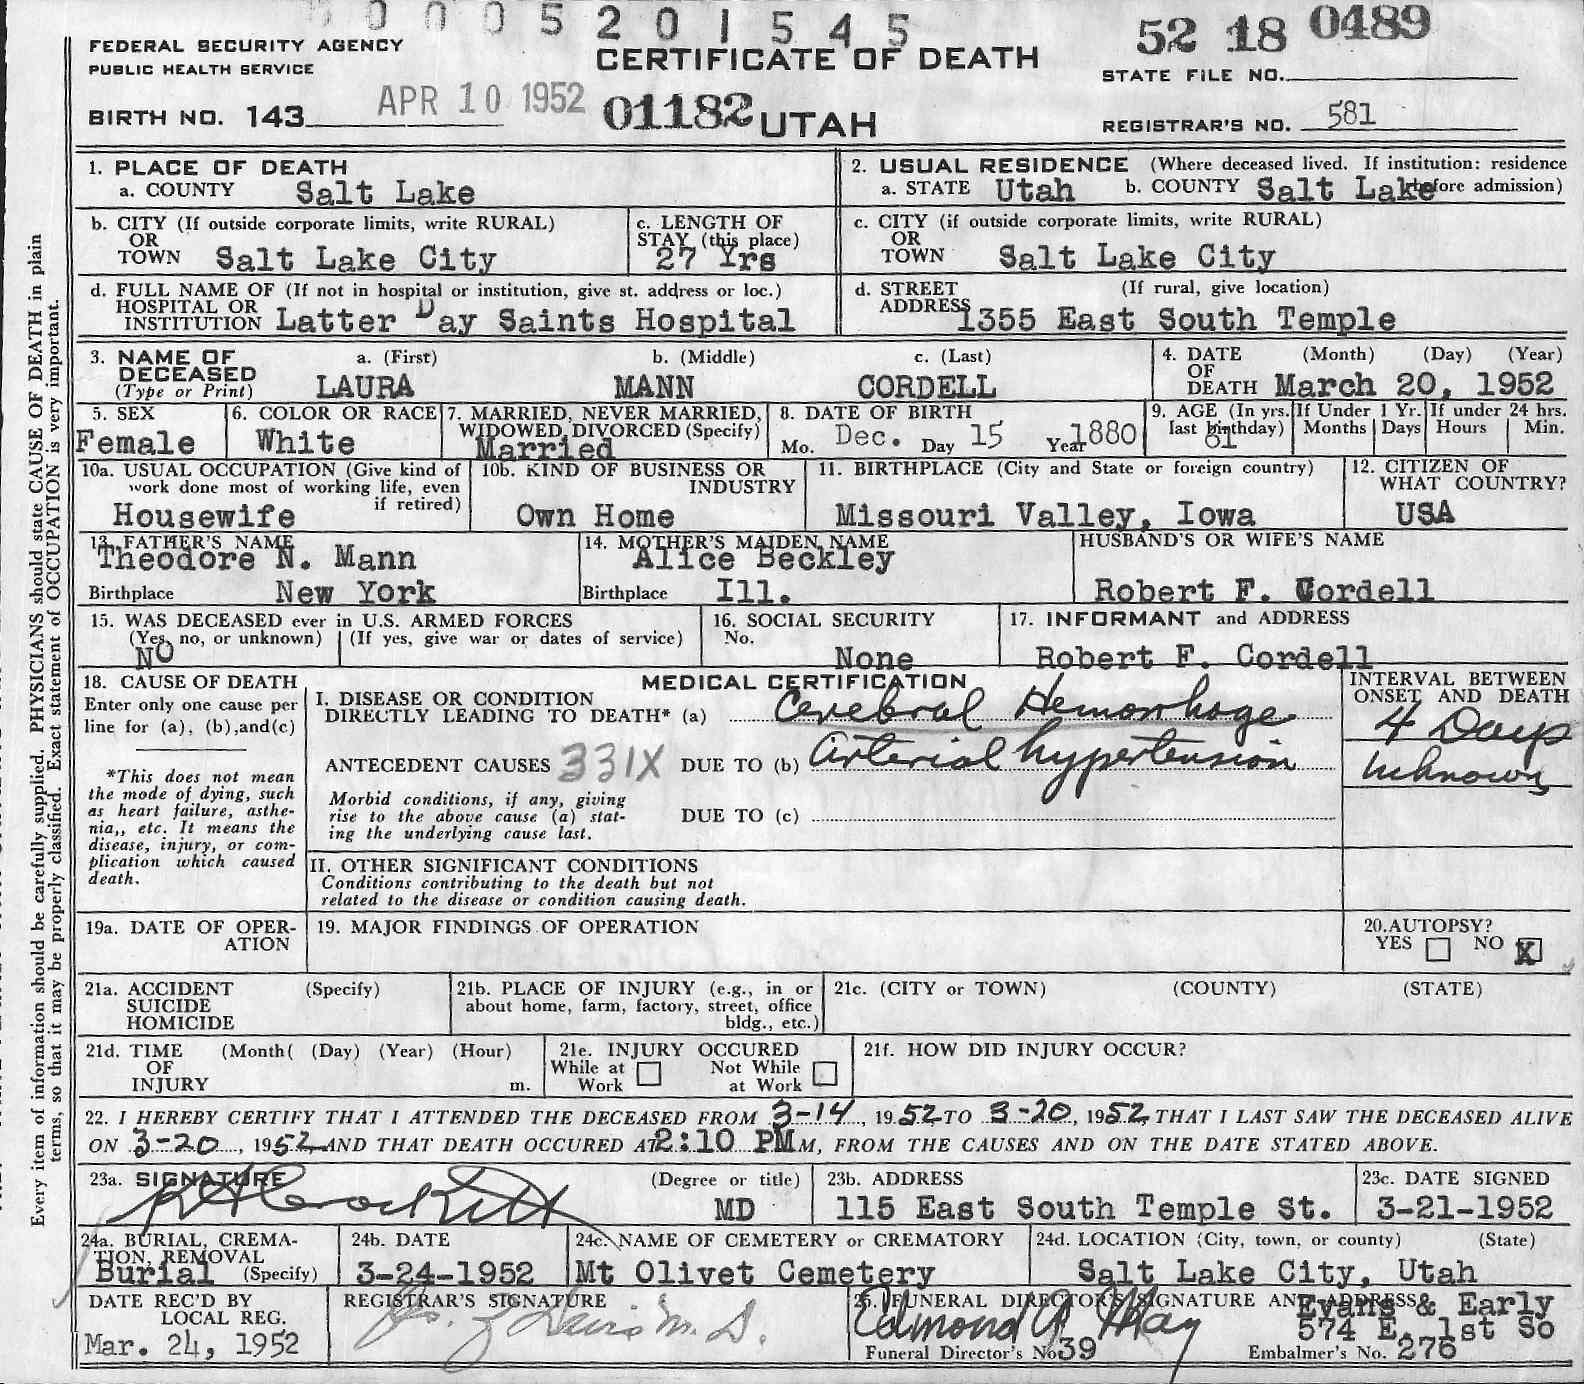 0005201545
FEDERAL SECURITY AGENCY
PUBLIC HEALTH SERVICE
CERTIFICATE OF DEATH
52 18 0489
STATE FILE NO.
BIRTH NO. 143
APR 10 1952
01182 UTAH
REGISTRAR'S NO. 581
1. PLACE OF DEATH
a. COUNTY Salt Lake
2. USUAL RESIDENCE (Where deceased lived. If institution: residence before admission)
a. STATE Utah b. COUNTY Salt Lake
b. CITY (If outside corporate limits, write RURAL)
OR
TOWN Salt Lake City
c. LENGTH OF
STAY (this place)
27 Yrs
c. CITY (if outside corporate limits, write RURAL)
OR
TOWN Salt Lake City
d. FULL NAME OF (If not in hospital or institution, give st. address or loc.)
HOSPITAL OR
INSTITUTION Latter Day Saints Hospital
d. STREET (If rural, give location)
ADDRESS 1355 East South Temple
3. NAME OF DECEASED (Type or Print)
a. (First) b. (Middle) c. (Last)
LAURA MANN CORDELL
4. DATE OF DEATH (Month) (Day) (Year)
March 20, 1952
5. SEX
Female
6. COLOR OR RACE
White
7. MARRIED, NEVER MARRIED,
WIDOWED, DIVORCED (Specify)
Married
8. DATE OF BIRTH
Mo. Dec. Day 15 Year 1880
9. AGE (In yrs. last birthday)
If Under 1 Yr. Months Days
If under 24 hrs. Hours Min.
10a. USUAL OCCUPATION (Give kind of
work done most of working life, even
if retired)
Housewife
10b. KIND OF BUSINESS OR
INDUSTRY
Own Home
11. BIRTHPLACE (City and State or foreign country)
Missouri Valley, Iowa
12. CITIZEN OF
WHAT COUNTRY?
USA
13. FATHER'S NAME
Theodore N. Mann
Birthplace New York
14. MOTHER'S MAIDEN NAME
Alice Beckley
Birthplace Ill.
HUSBAND'S OR WIFE'S NAME
Robert F. Cordell
15. WAS DECEASED ever in U.S. ARMED FORCES
(Yes, no, or unknown) (If yes, give war or dates of service)
NO
16. SOCIAL SECURITY
No.
None
17. INFORMANT and ADDRESS
Robert F. Cordell
18. CAUSE OF DEATH
Enter only one cause per
line for (a), (b), and (c)
*This does not mean
the mode of dying, such
as heart failure, asthe-
nia,, etc. It means the
disease, injury, or com-
plication which caused
death.
MEDICAL CERTIFICATION
I. DISEASE OR CONDITION
DIRECTLY LEADING TO DEATH* (a) Cerebral Hemorrhage
ANTECEDENT CAUSES 331X DUE TO (b) Arterial hypertension
Morbid conditions, if any, giving
rise to the above cause (a) stat-
ing the underlying cause last.
DUE TO (c)
II. OTHER SIGNIFICANT CONDITIONS
Conditions contributing to the death but not
related to the disease or condition causing death.
INTERVAL BETWEEN
ONSET AND DEATH
4 Days
Unknown
19a. DATE OF OPER-
ATION
19. MAJOR FINDINGS OF OPERATION
20. AUTOPSY?
YES NO X
21a. ACCIDENT (Specify)
SUICIDE
HOMICIDE
21b. PLACE OF INJURY (e.g., in or
about home, farm, factory, street, office
bldg., etc.)
21c. (CITY or TOWN) (COUNTY) (STATE)
21d. TIME (Month( (Day) (Year) (Hour)
OF
INJURY m.
21e. INJURY OCCURED
While at Work Not While at Work
21f. HOW DID INJURY OCCUR?
22. I HEREBY CERTIFY THAT I ATTENDED THE DECEASED FROM 3-14, 1952 TO 3-20, 1952, THAT I LAST SAW THE DECEASED ALIVE
ON 3-20, 1952 AND THAT DEATH OCCURED AT 2:10 PM M, FROM THE CAUSES AND ON THE DATE STATED ABOVE.
23a. SIGNATURE (Degree or title)
Crockett MD
23b. ADDRESS
115 East South Temple St.
23c. DATE SIGNED
3-21-1952
24a. BURIAL, CREMA-
TION, REMOVAL
Burial (Specify)
24b. DATE
3-24-1952
24c. NAME OF CEMETERY or CREMATORY
Mt Olivet Cemetery
24d. LOCATION (City, town, or county) (State)
Salt Lake City, Utah
DATE REC'D BY
LOCAL REG.
Mar. 24, 1952
REGISTRAR'S SIGNATURE
M. D.
25. FUNERAL DIRECTOR'S SIGNATURE AND ADDRESS
Edmond May
Evans & Early
574 E. 1st So
Funeral Director's No 39
Embalmer's No. 276
Every item of information should be carefully supplied. PHYSICIANS should state CAUSE OF DEATH in plain
terms, so that it may be properly classified. Exact statement of OCCUPATION is very important.